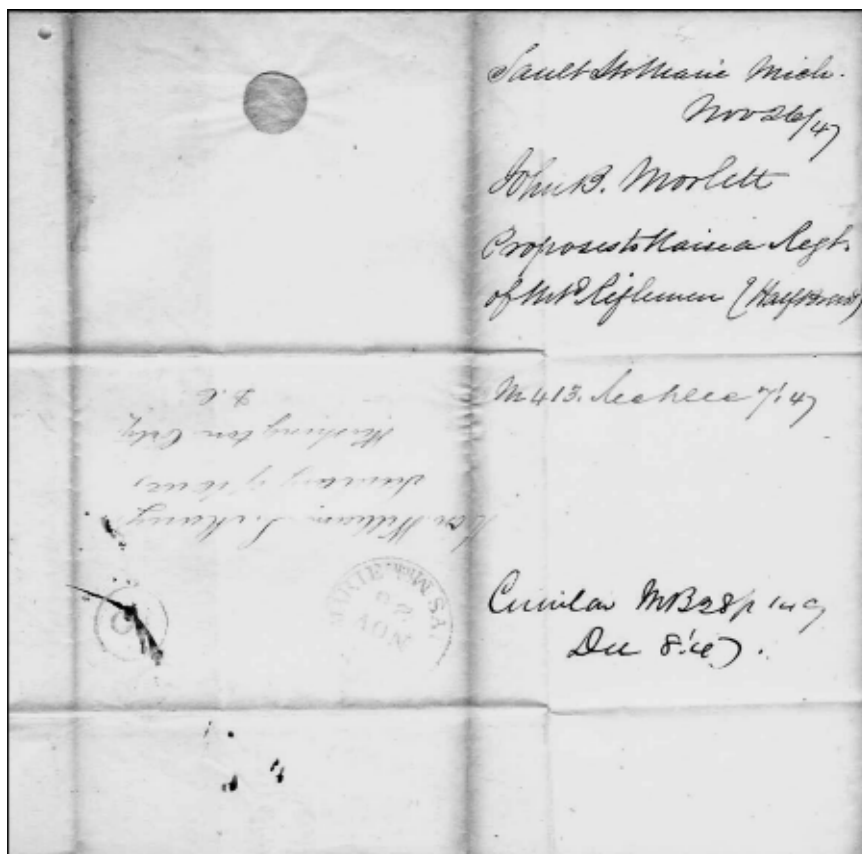 Sault Ste Marie Mich.
Nov 26/47
John B. Morlett
Proposes to Raise a Regt.
of Mtd Riflemen (Half Breeds)
M 413. 7. '47
Circular MB 28/p 149
Dec 8. '47.
Hon William L. Marcy,
Secretary of War,
Washington City
D. C
NOV